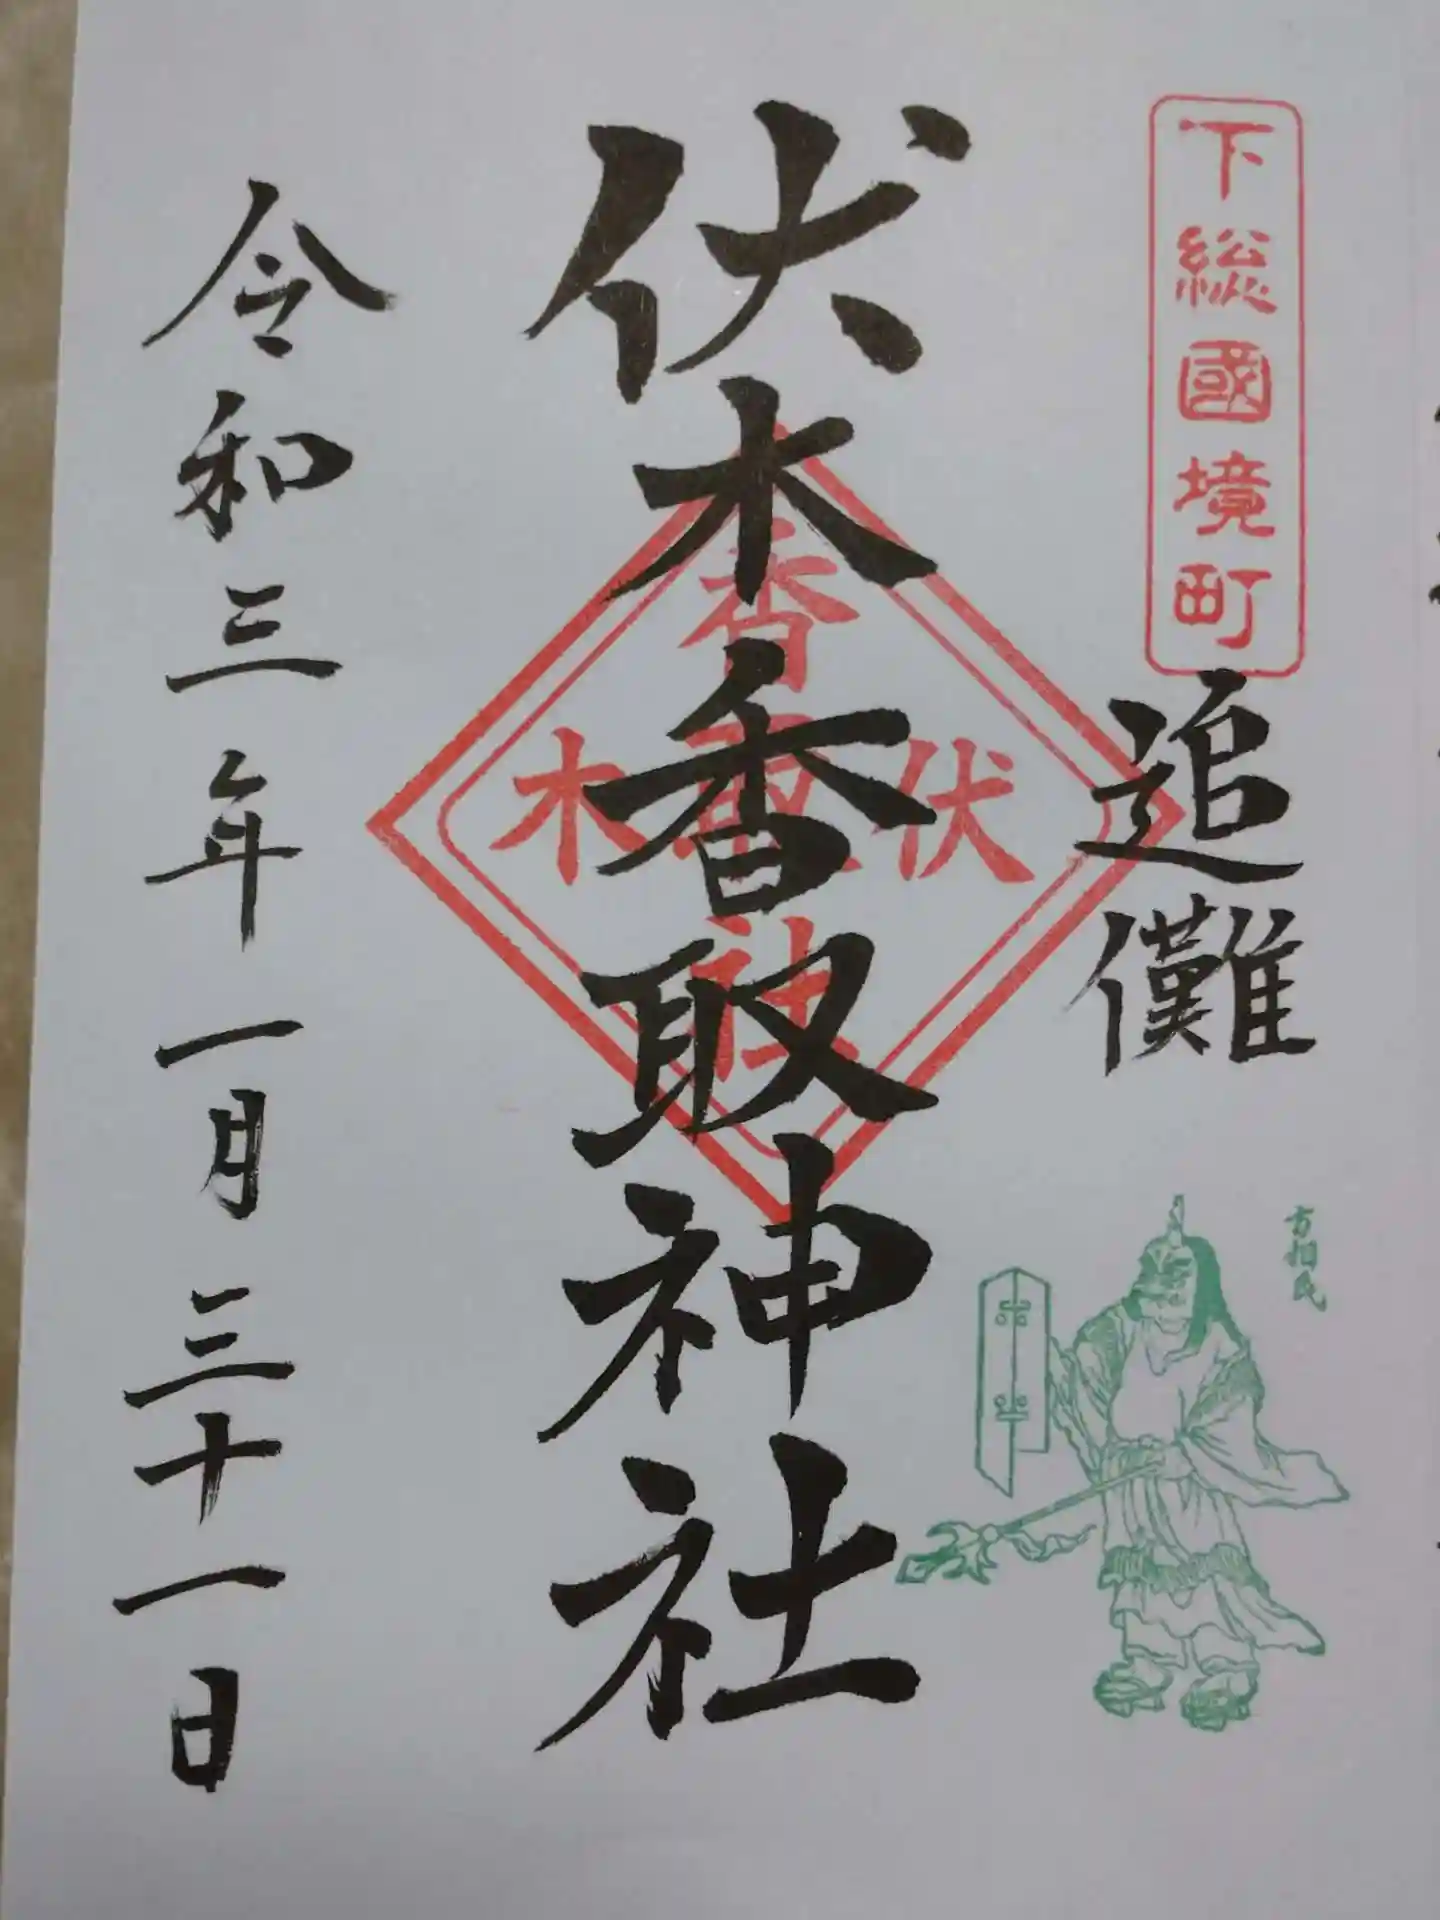 下総國境町
追儺
方相氏
伏木香取神社
香取社
伏木
令和三年一月三十一日